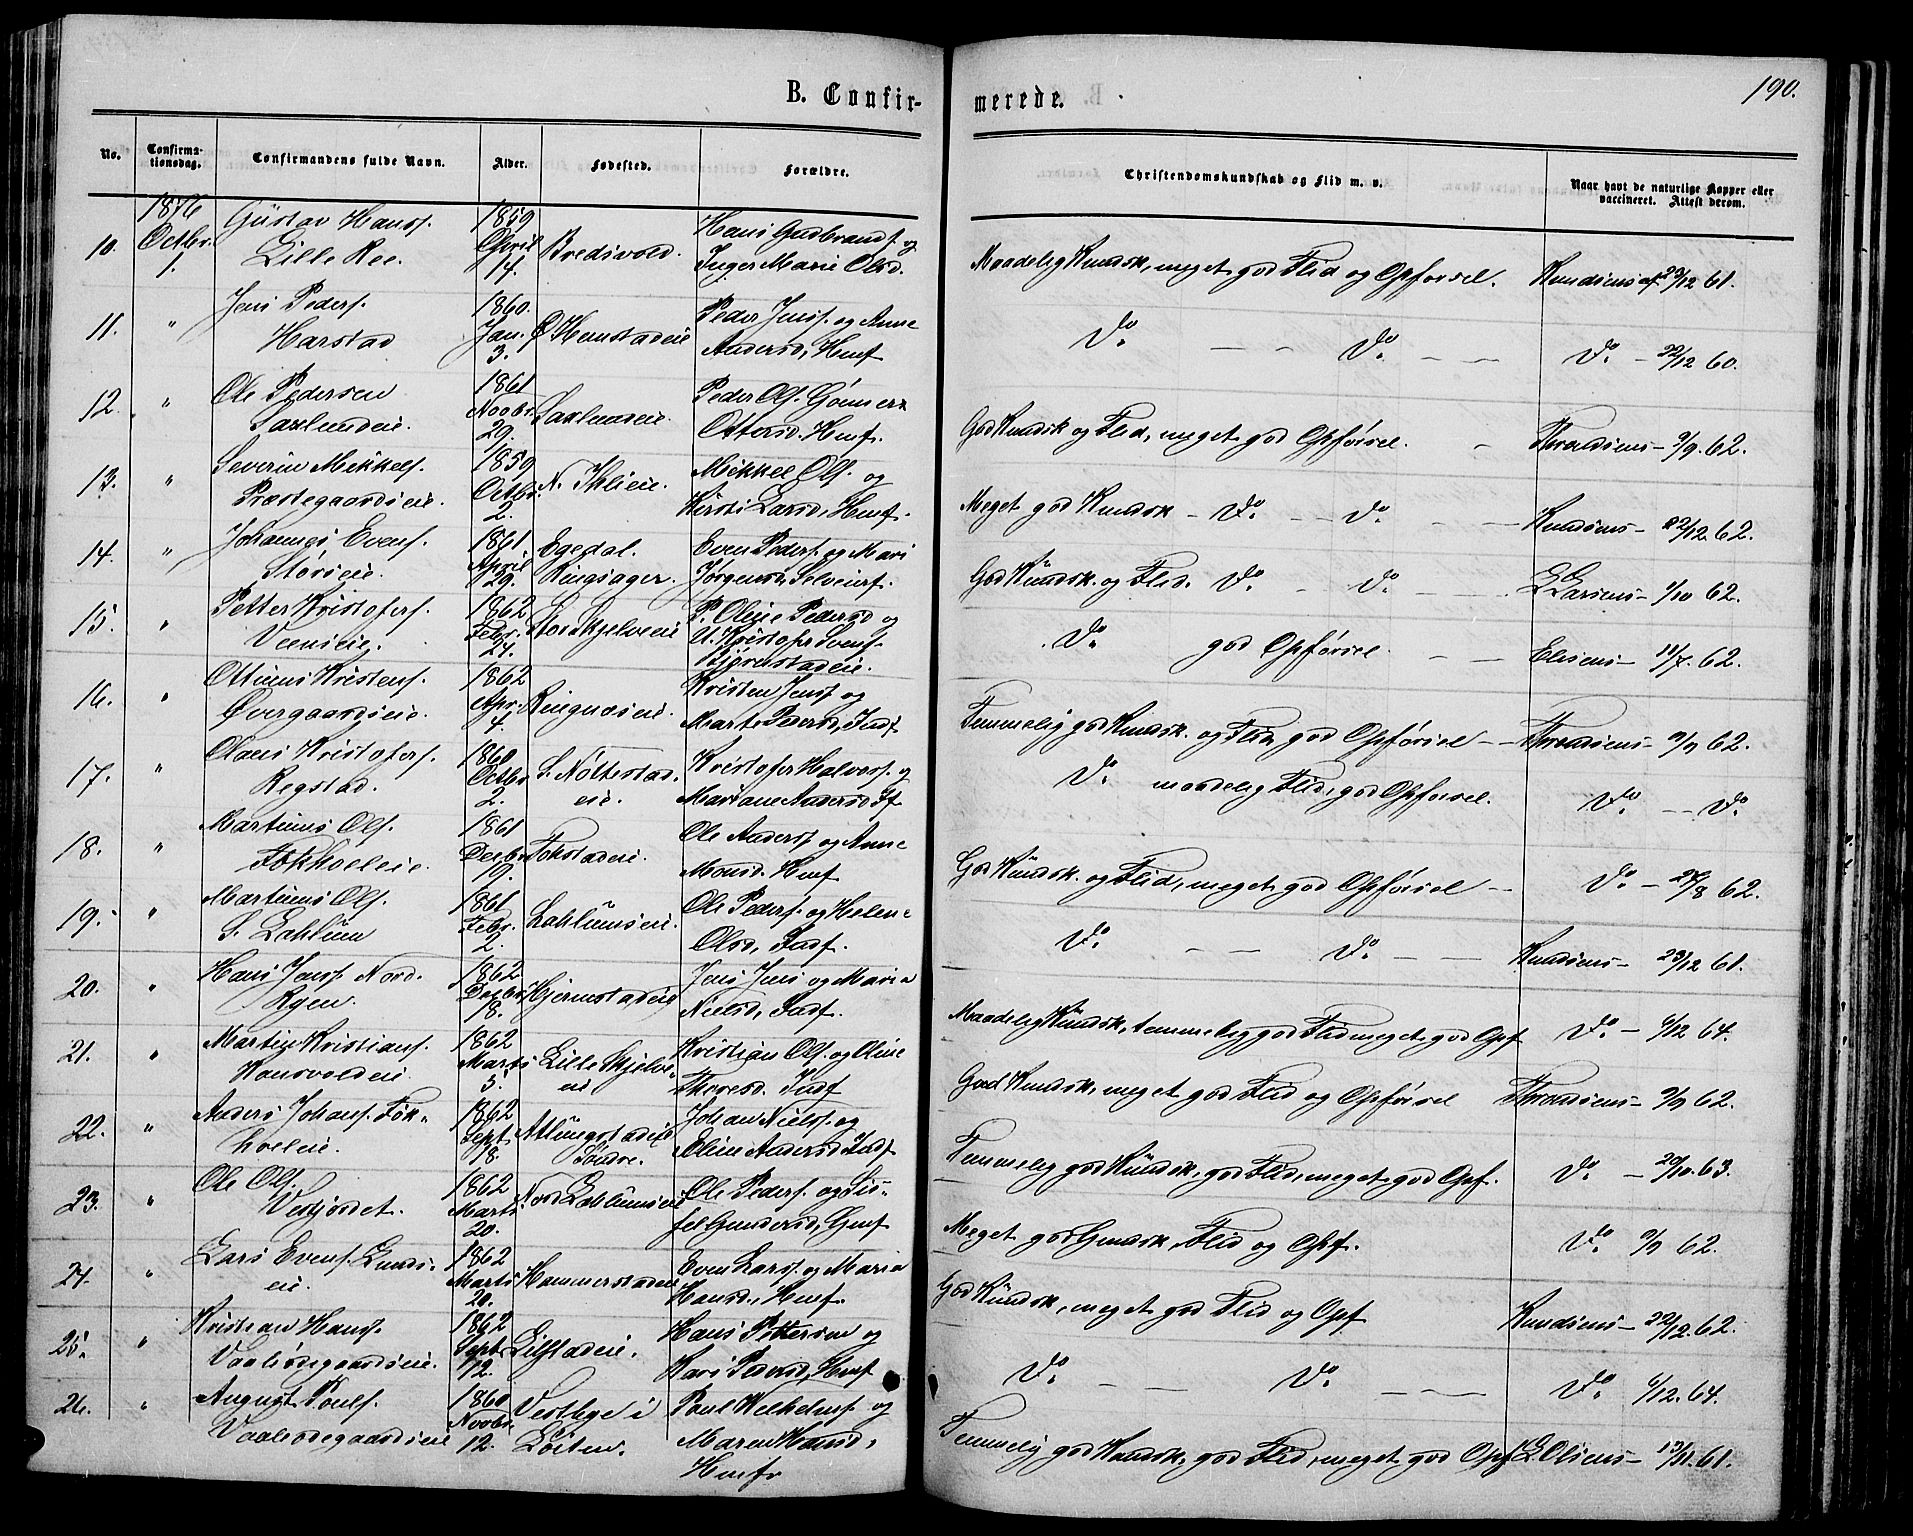 190.
B. Confirmerede.
No.
Confirmationsdag.
Confirmandens fulde Navn.
Alder.
Fødested.
Forældre.
Christendomskundskab og Flid m. v.
Naar havt de naturlige Kopper eller vaccineret. Attest derom.
10. 1876 Octbr. 1. Gustav Hanss. Lille Roe. 1859 April 14. Bredivold. Hans Gudbrands. og Inger Marie Olsd. Maadelig Kundsk, meget god Flid og Opførsel. Knudsens af 23/12 61.
11. " Jens Peders. Harstad 1860. Jan. 3. Ø. Hemstadeie Peder Jenss. og Anne Andersd, Hmf Do. — — Do. — — Do. — 22/12 60.
12. " Ole Pedersen Saxlundeie. 1861 Novbr. 29. Saxlundeie. Peder Ols. Gønner Ottersd. Hmf. God Kundsk og Flid, meget god Opførsel. - Throndsens — 9/9. 62.
13. " Severin Mikkels. Præstegaardseie. 1859 Octbr. 2. N. Ihlieie. Mikkel Ols. og Kirsti Larsd, Hmf. Meget god Kundsk - Do. — Do. — — Knudsens — 22/12. 62.
14. " Johannes Evens. Størseie. 1861 April 29. Egedal. Ringsager. Even Peders. og Mari Jørgensd, Selveierf. God Kundsk. og Flid. Do. - Do. — L Larsens — 1/10 62.
15. " Petter Kristofers. Veenseie. 1862 Febr. 24. Storskjelveeie P. Oleie Pedersd og U. Kristofer Svens. Bjørnstadeie. Do. god Opførsel. — — Elisens — 11/7. 62.
16. " Ottinus Kristens. Øvergaardseie. 1862 Apr. 4. Ringnæseie. Kristen Jens. og Marte Pedersd, Indf Temmelig god Kundsk. og Flid, god Opførsel — Throndsens — 9/9 62.
17. " Olaus Kristofers. Regstad. 1860 Octbr. 2. S. Nøttestadeie. Kristofer Halvors. og Mariane Andersd If Do. maadelig Flid, god Opførsel. Do. — Do.
18. " Martinus Ols. Fokholeie. 1861 Decbr. 19. Tokstadeie. Ole Anders. og Anne Monsd. Hmf God Kundsk. og Flid, meget god Opførsel — Do. — 26/8 62.
19. " Martinus Ols. S. Lahlum 1861 Febr. 2. Lahlumseie. Ole Peders. og Helene Olsd, Indf. Do. — — Do. — — Knudsens — 23/12 61.
20. " Hans Jens. Nord. Ryen. 1862. Decbr. 18. Hjermstadeie Jens Jens og Maria Nielsd, Indf. Maadelig Kundsk, temmelig god Flid meget god Opf Do. — 6/12 64.
21. " Martin Kristians. Konsvoldeie 1862 Marts 5. Lille Skjelveeie Kristian Ols. og Oline Thoresd. Indf God Kundsk, meget god Flid og Opførsel Throndsens — 9/9 62.
22. " Anders Johans. Fokholeie. 1862 Sept. 18. Atlungstadeie Søndre. Johan Niels. og Eline Andersd Indf Temmelig god Kundsk, god Flid, meget god Opf. Do. — 20/10. 63.
23. " Ole Ols. Vesjordet. 1862 Marts. 20. Nord Lahlumseie Ole Peders. og Sissel Gundersd, Gmf Meget god Kundsk, Flid og Opf. Do. 9/9 62.
24. " Lars Evens. Lundseie. 1862 Marts 20. Hammerstadeie Even Lars. og Maria Hansd., Hmf. God Kundsk, meget god Flid og Opf Knudsens — 22/12. 62.
25. " Kristian Hans. Vaalødegaardseie. 1862 Sept. 12. Lilstadeie. Hans Pettersen og Kari Pedersd, Hmf Do. — — Do. — — Do. 6/12. 64.
26. " August Pouls. Vaalødegaardseie 1860 Novbr. 12. Vestbye i Løiten. Poul Wilhelms. og Maren Hansd, Hmf Temmelig god Kundsk, god Flid, meget god Opf L Olsens — 13/11. 61.